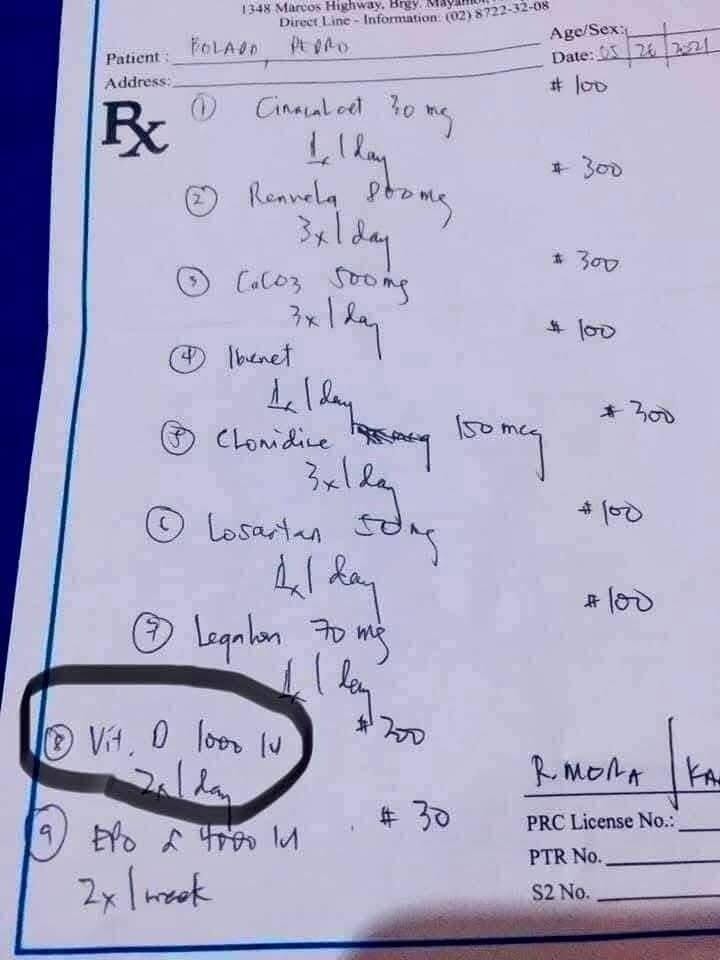 1348 Marcos Highway, Brgy.
Direct Line - Information: (02) 8722-32-08
Patient: PEDRO
Age/Sex:
Address:
Date: 05/26/2021
Rx
① Cinacalcet 30 mg # 100
1x/day
② Renvela 800 mg # 300
3x/day
③ CaCO3 500mg # 300
3x/day
④ Iberet # 100
1x/day
⑤ Clonidine 150 mcg # 300
3x/day
⑥ Losartan 50 mg # 100
1x/day
⑦ Legalon 70 mg # 100
1x/day
⑧ Vit. D 1000 IU # 200
2x/day
⑨ EPO 4000 IU # 30
2x/week
R. MORA / KA
PRC License No.:
PTR No.
S2 No.